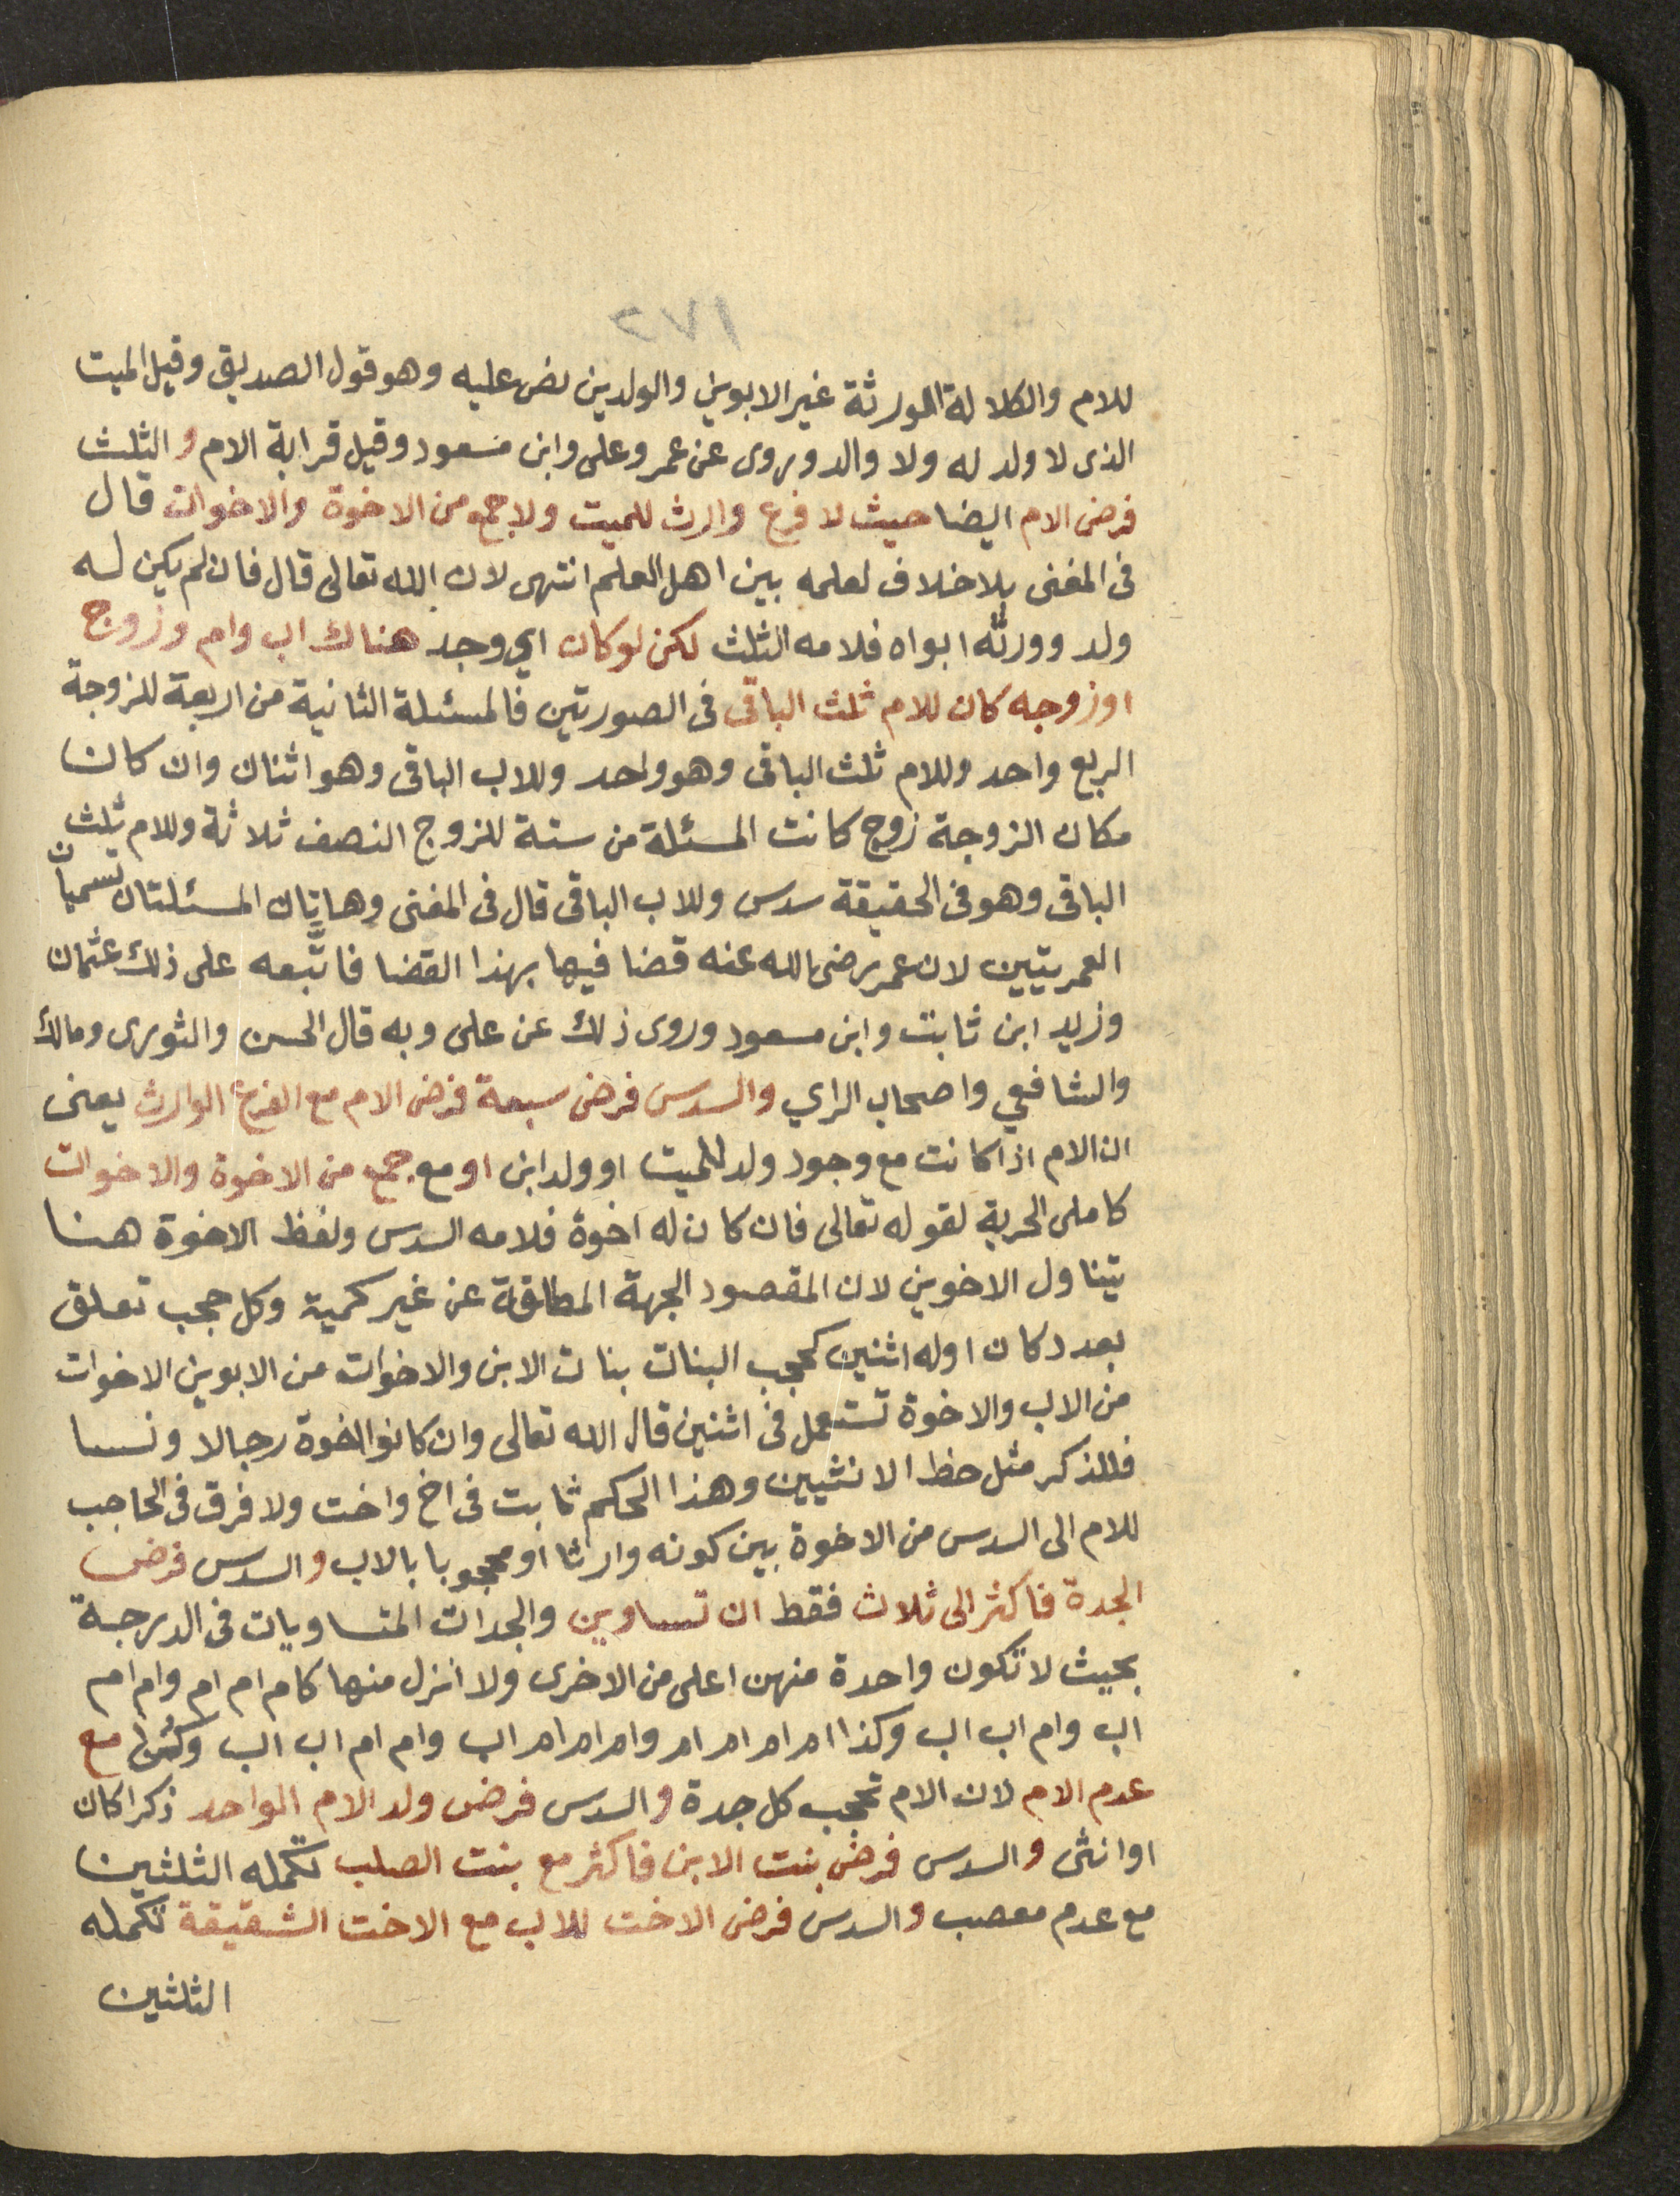 ١٧٢
للام والكلالة المورثة غير الابوين والولدين نص عليه وهو قول الصديق وقيل الميت
الذى لا ولد له ولا والد وىروى عن عمر وعلى وابن مسعود وقيل قرابة الام والثلث
فرض الام ايضا حيث لا فرع وارث للميت ولا جمع من الاخوة والاخوات قال
فى المغنى بلا خلاف لعلمه بين اهل العلم انتهى لان الله تعالى قال فان لم يكن له
ولد وورثه ابواه فلامه الثلث لكن لو كان اي وجد هناك اب وام وزوج
اوزوجه كان للام ثلث الباقى فى الصورتين فالمسئلة الثانية من اربعة للزوجة
الربع واحد وللام ثلث الباقى وهو واحد وللاب الباقى وهو اثنان وان كان
مكان الزوجة زوج كانت المسئلة من ستة للزوج النصف ثلاثة وللام ثلث
الباقى وهو فى الحقيقة سدس وللاب الباقى قال فى المغنى وهاتان المسئلتان تسميان
العمريتين لان عمر رضى الله عنه قضا فيها بهذا القضا فاتَّبعه على ذلك عثمان
وزيد ابن ثابت وابن مسعود وروى ذلك عن على وبه قال الحسن والثورى ومالك
والشافعي واصحاب الراي والسدس فرض سبعة فرض الام مع الفرع الوارث يعنى
ان الام اذا كانت مع وجود ولد للميت او ولد ابن او مع جمع من الاخوة والاخوات
كاملى الحرية لقوله تعالى فان كان له اخوة فلامه السدس ولفظ الاخوة هنا
يتناول الاخوين لان المقصود الجهة المطلقة عن غير كمية وكل حجب تعلق
بعدد كان اوله اثنين كحجب البنات بنات الابن والاخوات من الابوين الاخوات
من الاب والاخوة تستعمل فى اثنين قال الله تعالى وان كانوا اخوة رجالا ونسا
فللذكر مثل حظ الانثيين وهذا الحكم ثابت فى اخ واخت ولا فرق فى الحاجب
للام الى السدس من الاخوة بين كونه وارثا او محجوبا بالاب والسدس فرض
الجدة فاكثر الى ثلاث فقط ان تساوين والجدات المتساويات فى الدرجة
بحيث لا تكون واحدة منهن اعلى من الاخرى ولا انزل منها كام ام ام وام ام
اب وام اب اب وكذا ام ام ام ام وام ام ام اب وام ام اب اب وكن مع
عدم الام لان الام تحجب كل جدة والسدس فرض ولد الام الواحد ذكرا كان
او انثى والسدس فرض بنت الابن فاكثر مع بنت الصلب تكمله الثلثين
مع عدم معصب والسدس فرض الاخت للاب مع الاخت الشقيقة تكمله
الثلثين